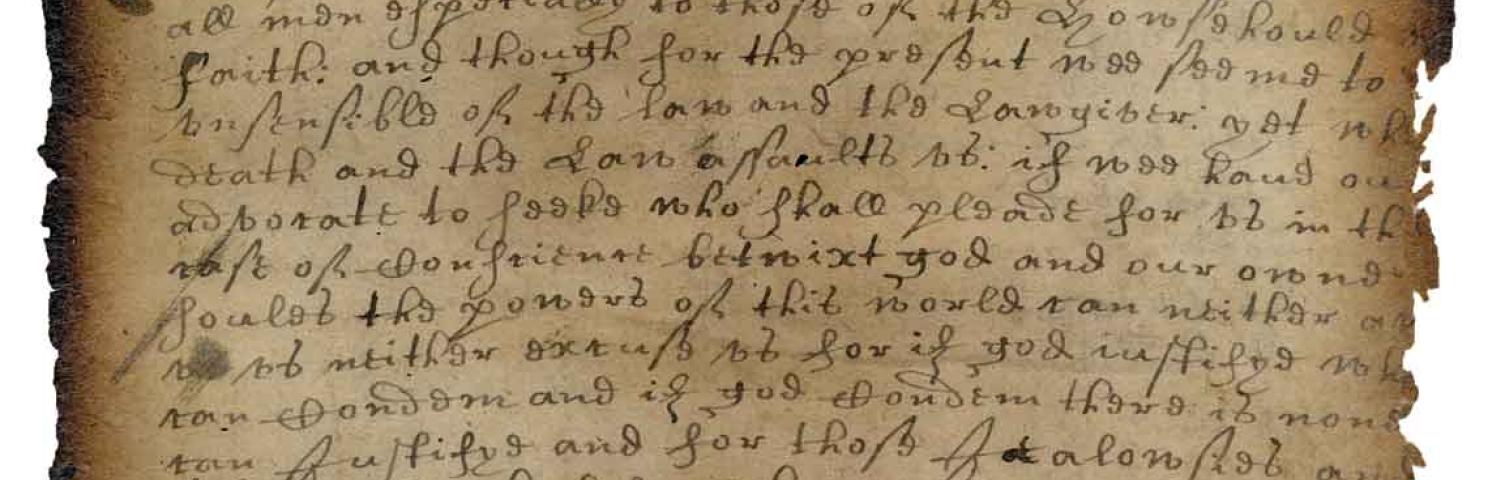 all men espetially to those of the Howsehould
Faith: and though for the present wee seeme to
vnsensible of the law and the Lawgiver: yet wh
death and the Law assaults vs: if wee haue ou
advocate to seeke who shall pleade for vs in th
case of Conscience betwixt god and our owne
soules the powers of this world can neither
vs neither excuse vs for if god iustifye wh
can Condem and if god Condem there is none
can Justifye and for those Jealowsies an